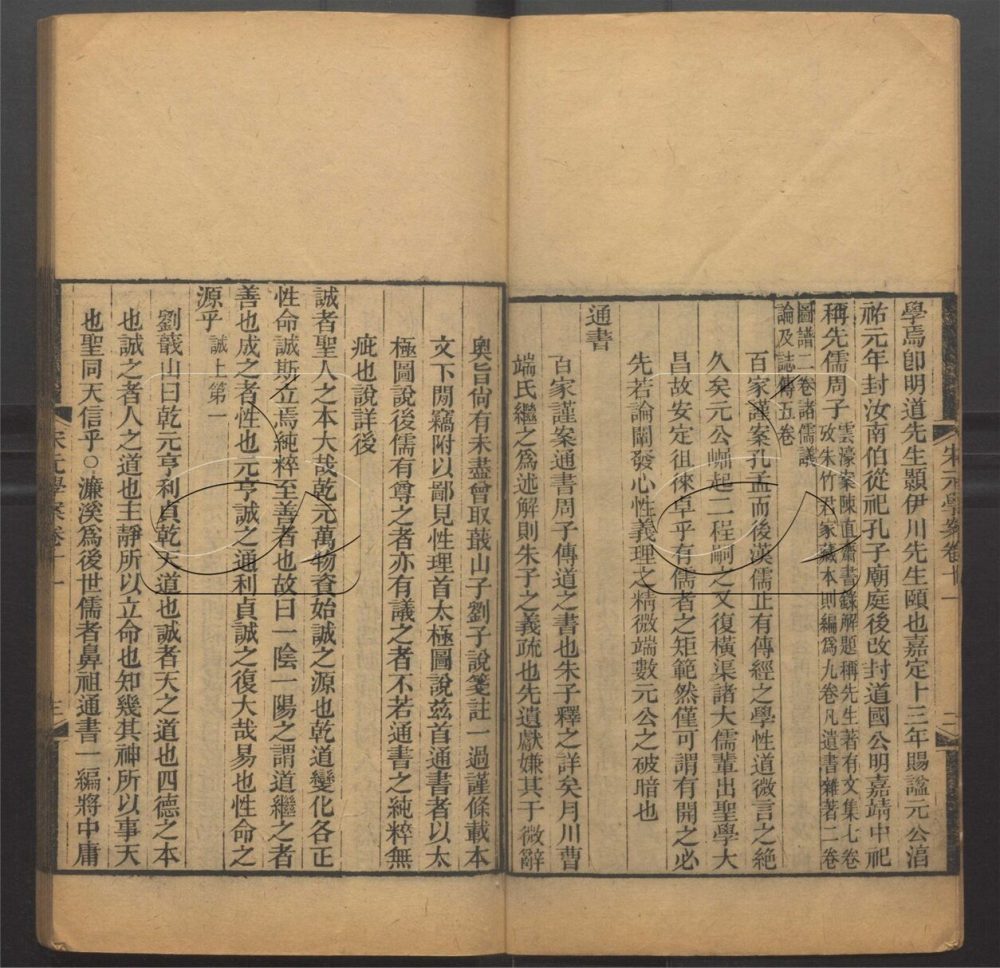 學焉卽明道先生顥伊川先生頤也嘉定十三年賜諡元公淳
祐元年封汝南伯從祀孔子廟庭後改封道國公明嘉靖中祀
稱先儒周子雲濠案陳直齋書錄解題稱先生著有文集七卷
攷朱竹君家藏本則編爲九卷凡遺書雜著二卷
圖譜二卷諸儒議
論及誌傳五卷
百家謹案孔孟而後漢儒止有傳經之學性道微言之絶
久矣元公崛起二程嗣之又復橫渠諸大儒輩出聖學大
昌故安定徂徠卓乎有儒者之矩範然僅可謂有開之必
先若論闡發心性義理之精微端數元公之破暗也
通書
百家謹案通書周子傳道之書也朱子釋之詳矣月川曹
端氏繼之爲述解則朱子之義疏也先遺獻嫌其于微辭
宋元學案卷十一
二
奧旨尙有未盡曾取蕺山子劉子說箋註一過謹條載本
文下閒竊附以鄙見性理首太極圖說兹首通書者以太
極圖說後儒有尊之者亦有議之者不若通書之純粹無
疵也說詳後
誠者聖人之本大哉乾元萬物資始誠之源也乾道變化各正
性命誠斯立焉純粹至善者也故曰一陰一陽之謂道繼之者
善也成之者性也元亨誠之通利貞誠之復大哉易也性命之
源乎 誠上第一
劉蕺山曰乾元亨利貞乾天道也誠者天之道也四德之本
也誠之者人之道也主靜所以立命也知幾其神所以事天
也聖同天信乎○濂溪爲後世儒者鼻祖通書一編將中庸
宋元學案卷十一
三